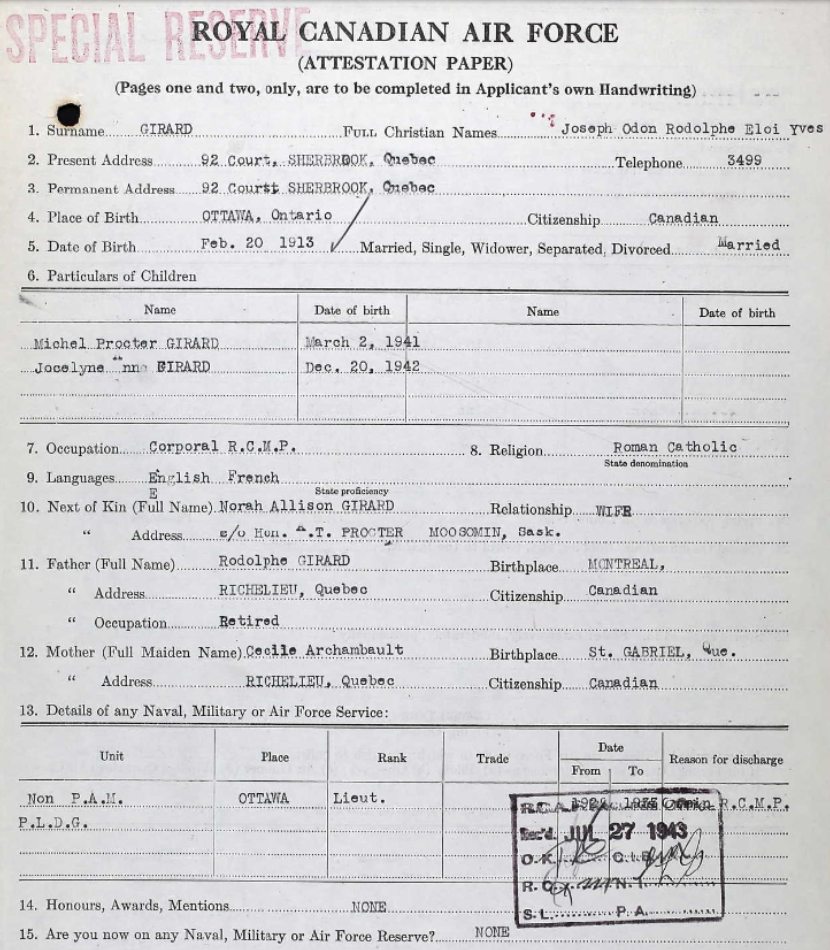 SPECIAL RESERVE
ROYAL CANADIAN AIR FORCE
(ATTESTATION PAPER)
(Pages one and two, only, are to be completed in Applicant's own Handwriting)
1. Surname GIRARD FULL Christian Names Joseph Odon Rodolphe Eloi Yves
2. Present Address 92 Court, SHERBROOK, Quebec Telephone 3499
3. Permanent Address 92 Court SHERBROOK, Quebec
4. Place of Birth OTTAWA, Ontario Citizenship Canadian
5. Date of Birth Feb. 20 1913 Married, Single, Widower, Separated, Divorced Married
6. Particulars of Children
Name Date of birth Name Date of birth
Michel Procter GIRARD March 2, 1941
Jocelyne GIRARD Dec. 20, 1942
7. Occupation Corporal R.C.M.P. 8. Religion Roman Catholic
State denomination
9. Languages English French
E State proficiency
10. Next of Kin (Full Name) Norah Allison GIRARD Relationship WIFE
" Address c/o Hon. A.T. PROCTER MOOSOMIN, Sask.
11. Father (Full Name) Rodolphe GIRARD Birthplace MONTREAL,
" Address RICHELIEU, Quebec Citizenship Canadian
" Occupation Retired
12. Mother (Full Maiden Name) Cecile Archambault Birthplace St. GABRIEL, Que.
" Address RICHELIEU, Quebec Citizenship Canadian
13. Details of any Naval, Military or Air Force Service:
Unit Place Rank Trade Date From To Reason for discharge
Non P.A.M. OTTAWA Lieut. R.C.M.P.
P.L.D.G.
R.C.A.F.
Rec'd. JUL 27 1943
O.K. C.I.B.
R.O. N.I.
S.L. P.A.
14. Honours, Awards, Mentions NONE
15. Are you now on any Naval, Military or Air Force Reserve? NONE